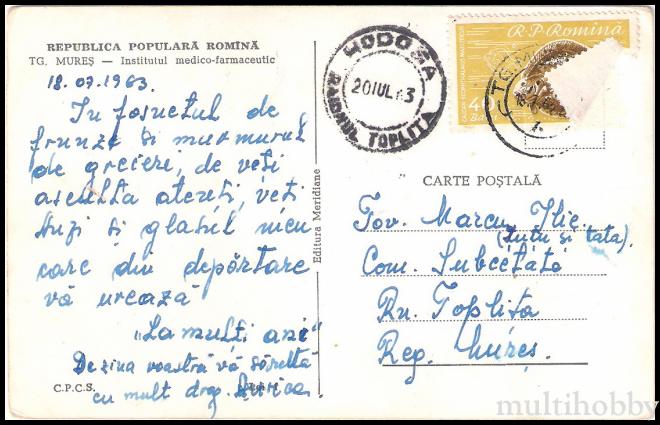 REPUBLICA POPULARĂ ROMÎNĂ
TG. MUREȘ — Institutul medico-farmaceutic
18.07.1963
În fosnetul de
frunze și murmurul
de greciere, de veți
asculta atenți, veți
auzi și glasul meu
care din depărtare
vă urează
„La mulți ani"
De ziua voastră vă
cu mult drag
C.P.C.S.
Editura Meridiane
HODOȘA
20 IUL 63
RAIONUL TOPLIȚA
R.P. Romina
40
Bani
TG. M
CARTE POȘTALĂ
Tov. Marcu Ilie.
(Luțu și tata).
Com. Subcetate
Rn. Toplița
Reg. Mureș.
multihobby